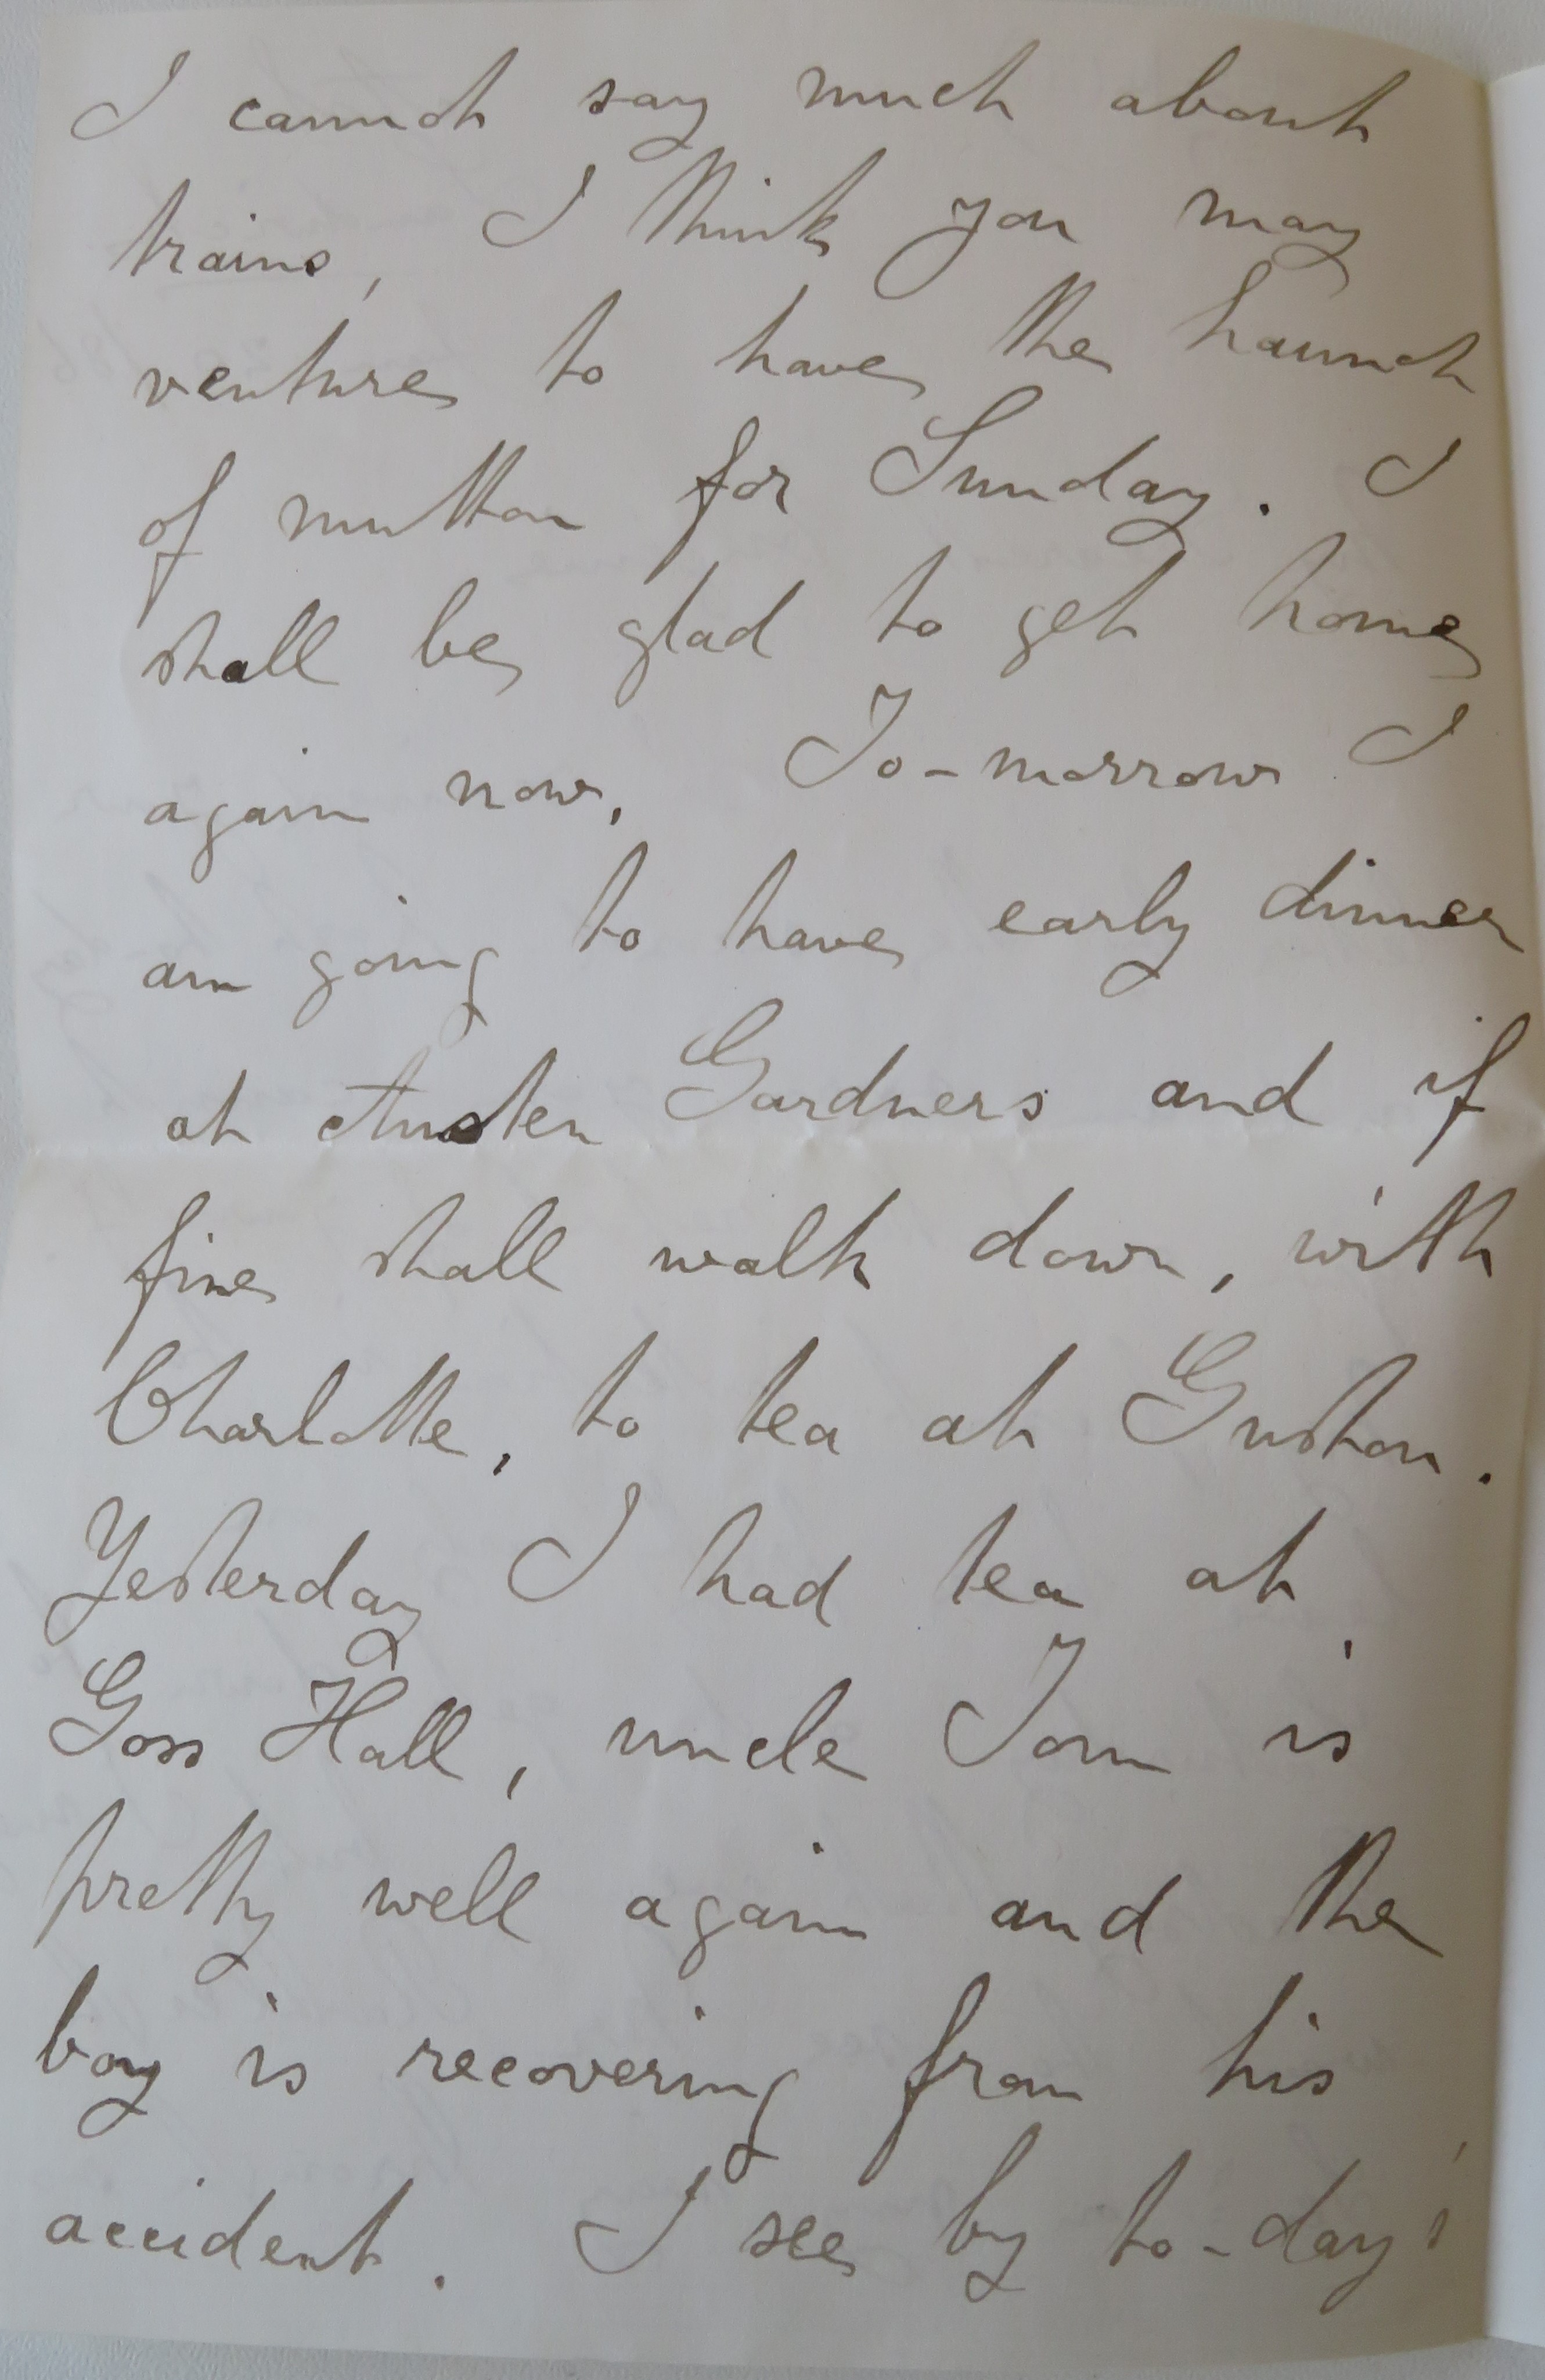 I cannot say much about
trains, I think you may
venture to have the haunch
of mutton for Sunday. I
shall be glad to get home
again now. To-morrow I
am going to have early dinner
at Austen Gardners and if
fine shall walk down, with
Charlotte, to tea at Guston.
Yesterday I had tea at
Goss Hall, uncle Tom is
pretty well again and the
boy is recovering from his
accident. I see by to-day's